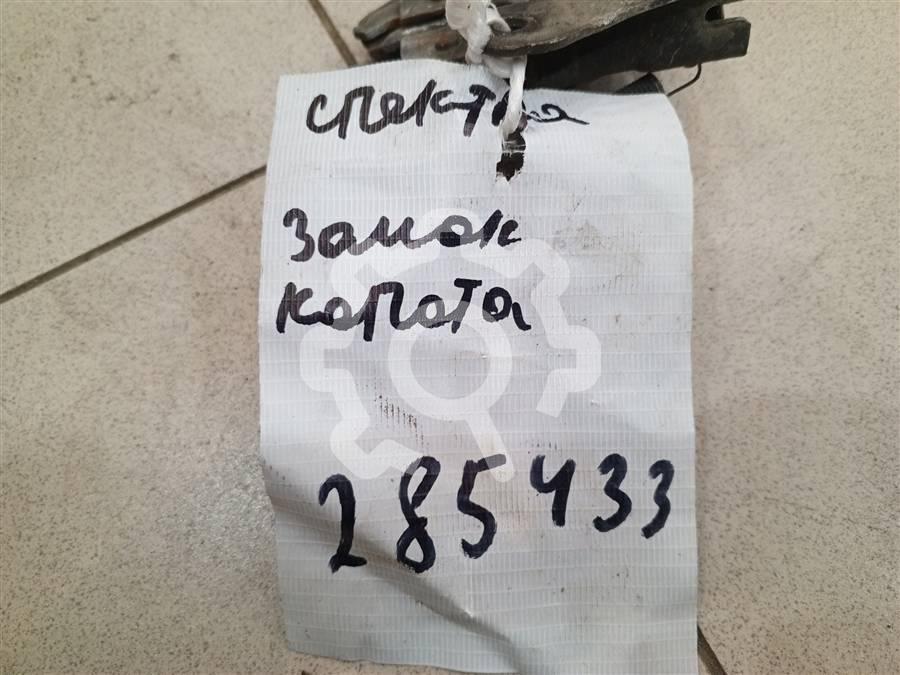 Спектра
Замок
капота
285433